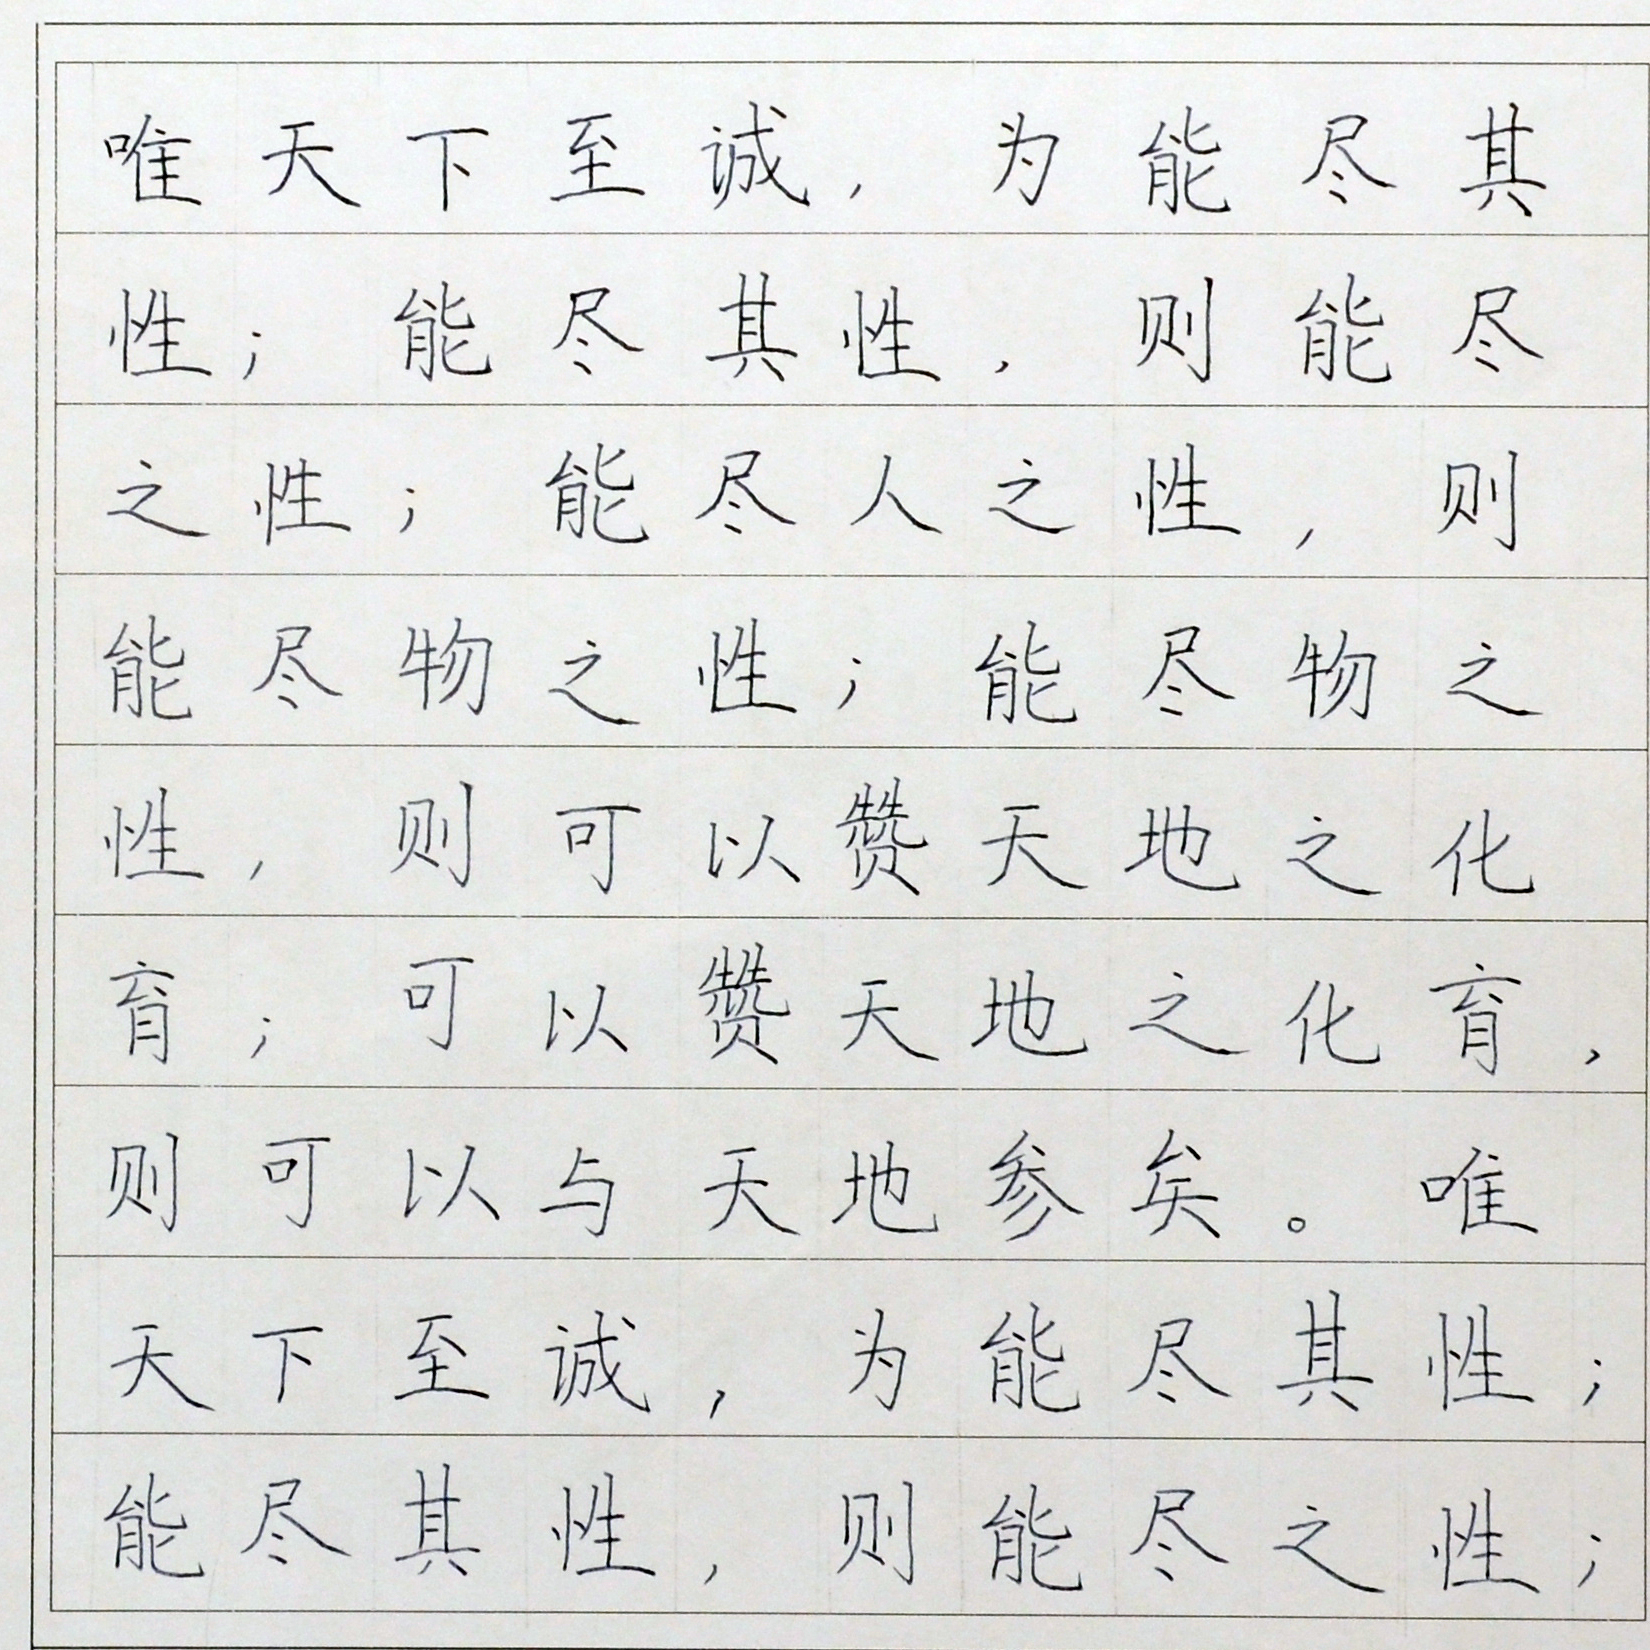 唯天下至诚,为能尽其
性;能尽其性,则能尽
之性;能尽人之性,则
能尽物之性;能尽物之
性,则可以赞天地之化
育;可以赞天地之化育,
则可以与天地参矣。唯
天下至诚,为能尽其性;
能尽其性,则能尽之性;